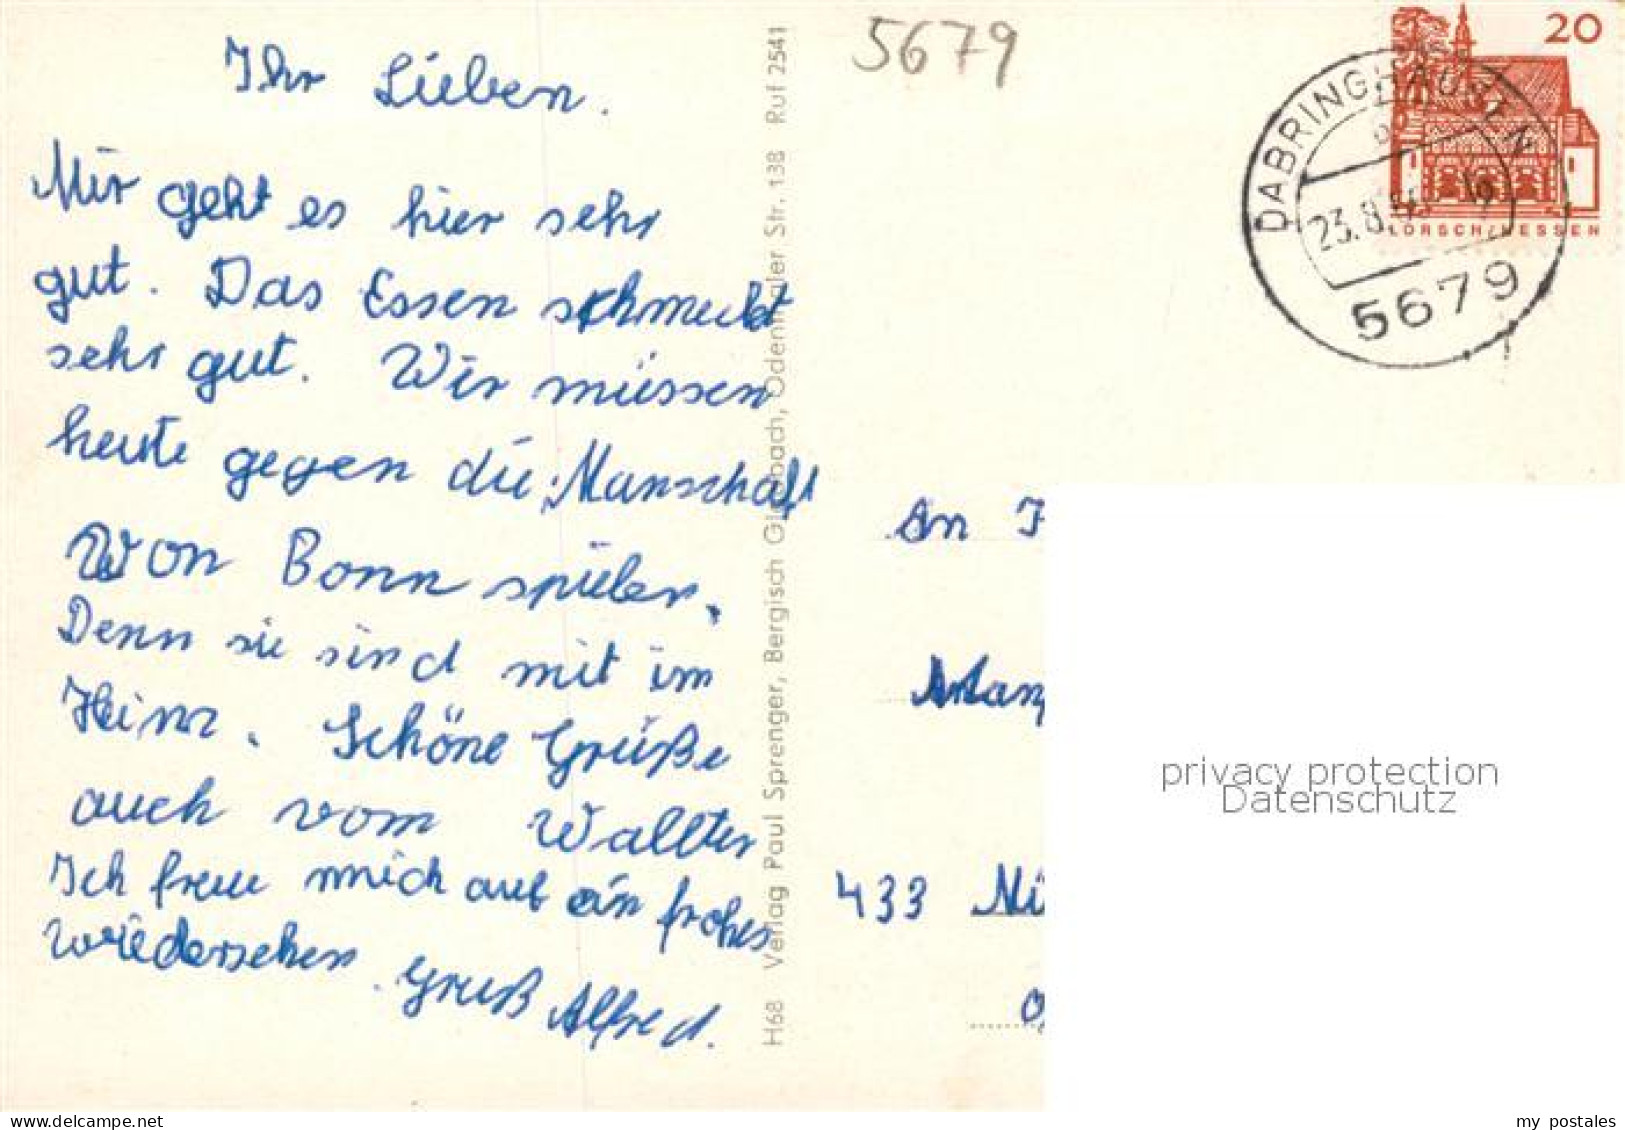 Ihr Lieben.
Mir geht es hier sehr
gut. Das Essen schmeckt
sehr gut. Wir müssen
heute gegen die Manschaft
Won Bonn spielen.
Denn sie sind mit im
Heim. Schöne Grüße
auch vom Wallter
Ich freue mich auf ein frohes
wiedersehen. Gruß Alfred.
H68 Verlag Paul Sprenger, Bergisch Gladbach, Odenthaler Str. 138 Ruf 2541
5679
20
LORSCH/HESSEN
DABRINGHAUSEN
23.8.
5679
An
433
privacy protection
Datenschutz
delcampe.net
my_postales